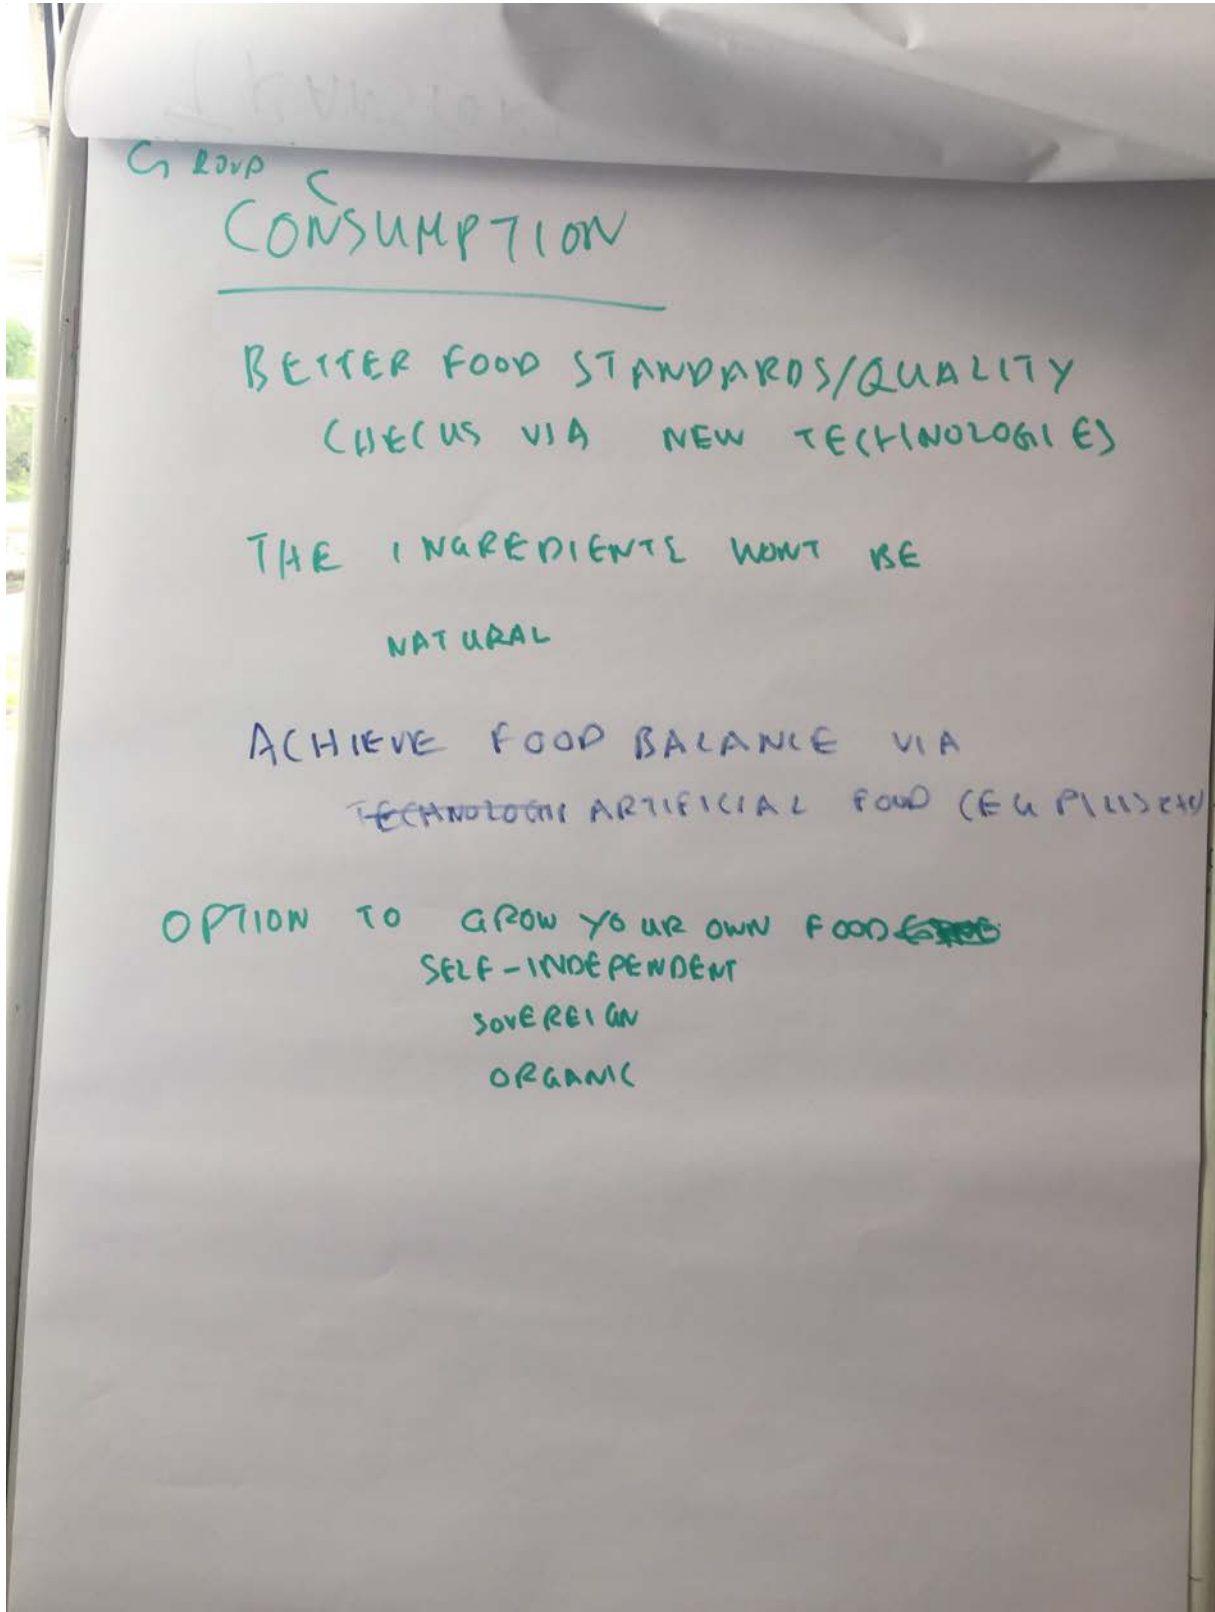 GROUP C
CONSUMPTION
BETTER FOOD STANDARDS/QUALITY
CHECKS VIA NEW TECHNOLOGIES
THE INGREDIENTS WONT BE
NATURAL
ACHIEVE FOOD BALANCE VIA
ARTIFICIAL FOOD (EG PILLS etc)
OPTION TO GROW YOUR OWN FOOD
SELF-INDEPENDENT
SOVEREIGN
ORGANIC